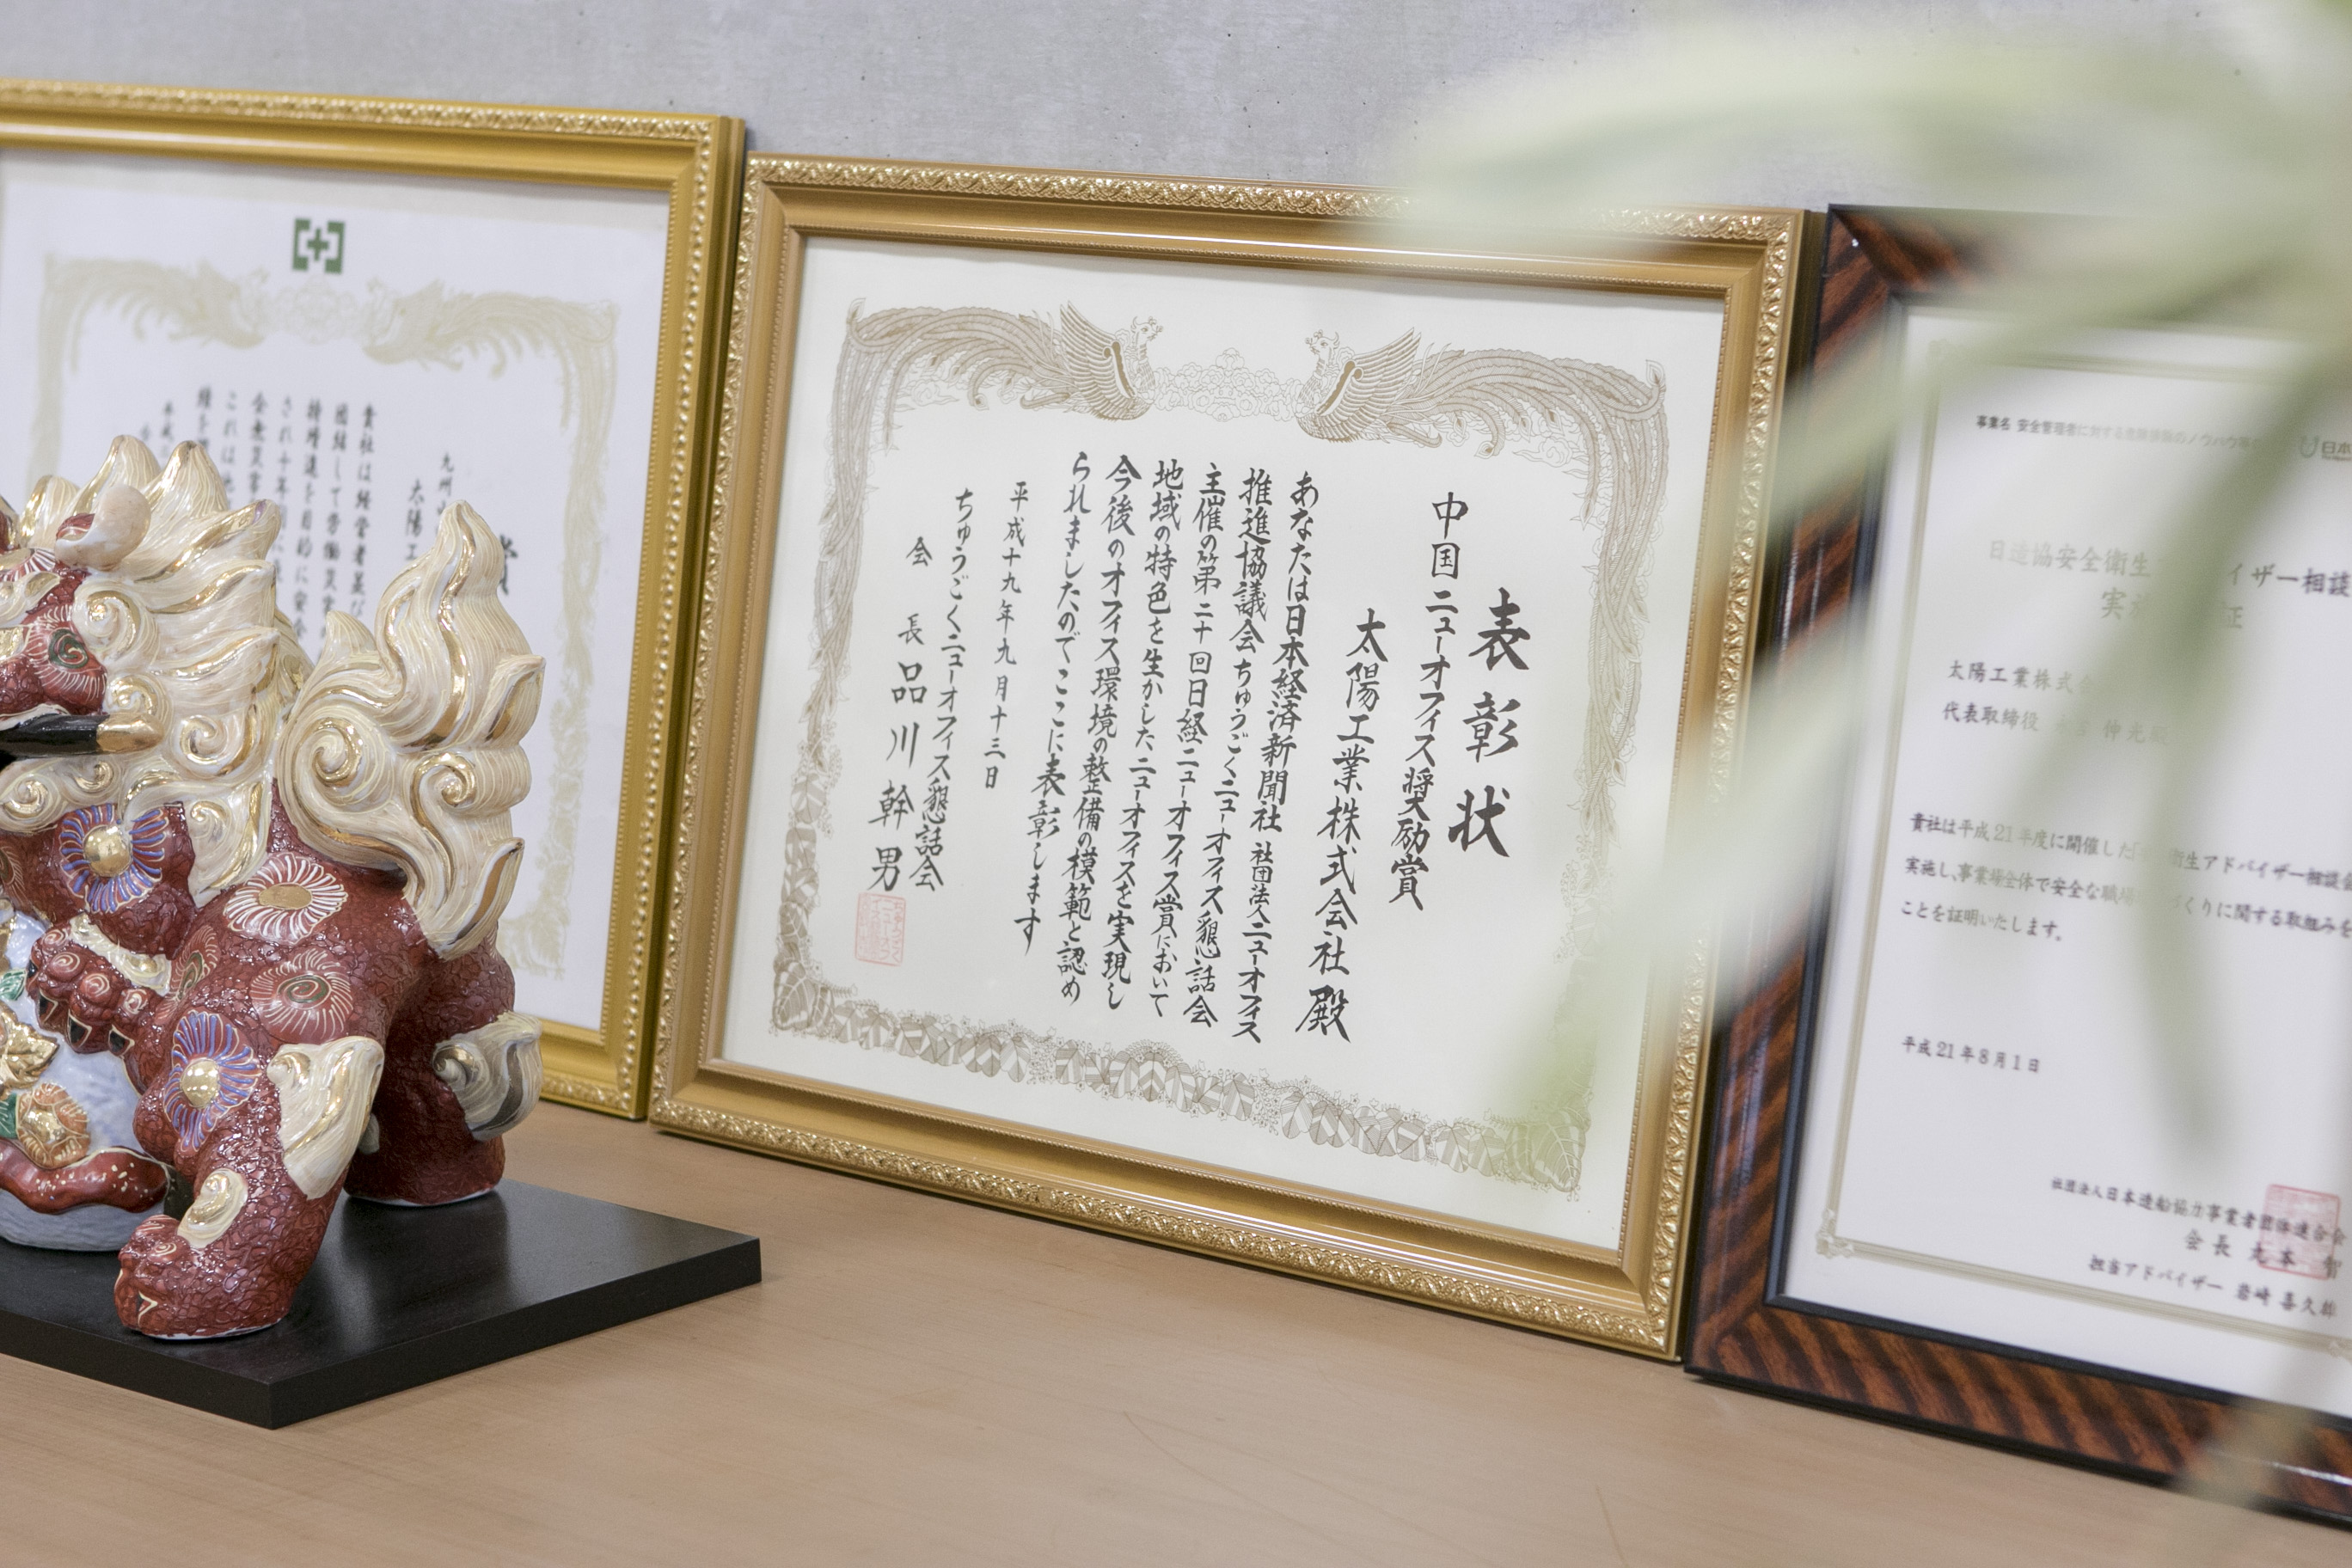 表彰状
中国ニューオフィス奨励賞
太陽工業株式会社殿
あなたは日本経済新聞社 社団法人ニューオフィス
推進協議会 ちゅうごくニューオフィス懇話会
主催の第二十回日経ニューオフィス賞において
地域の特色を生かしたニューオフィスを実現し
今後のオフィス環境の整備の模範と認め
られましたのでここに表彰します
平成十九年九月十三日
ちゅうごくニューオフィス懇話会
会長 品川幹男
賞
九州
太陽工
貴社は経営者並び
団結して労働災害
特絶滅を目的に安全
され十年
全無災害
これは
平成
事業名 安全管理者に対する危険排除のノウハウ等
日本
日造協安全衛生 イザー相談
実 証
太陽工業株式会
代表取締役 伸光殿
貴社は平成21年度に開催した 衛生アドバイザー相談会
実施し、事業場全体で安全な職場 くりに関する取組みを
ことを証明いたします。
平成21年8月1日
社団法人日本造船協力事業者団体連合会
会長
担当アドバイザー 岩崎 喜久雄